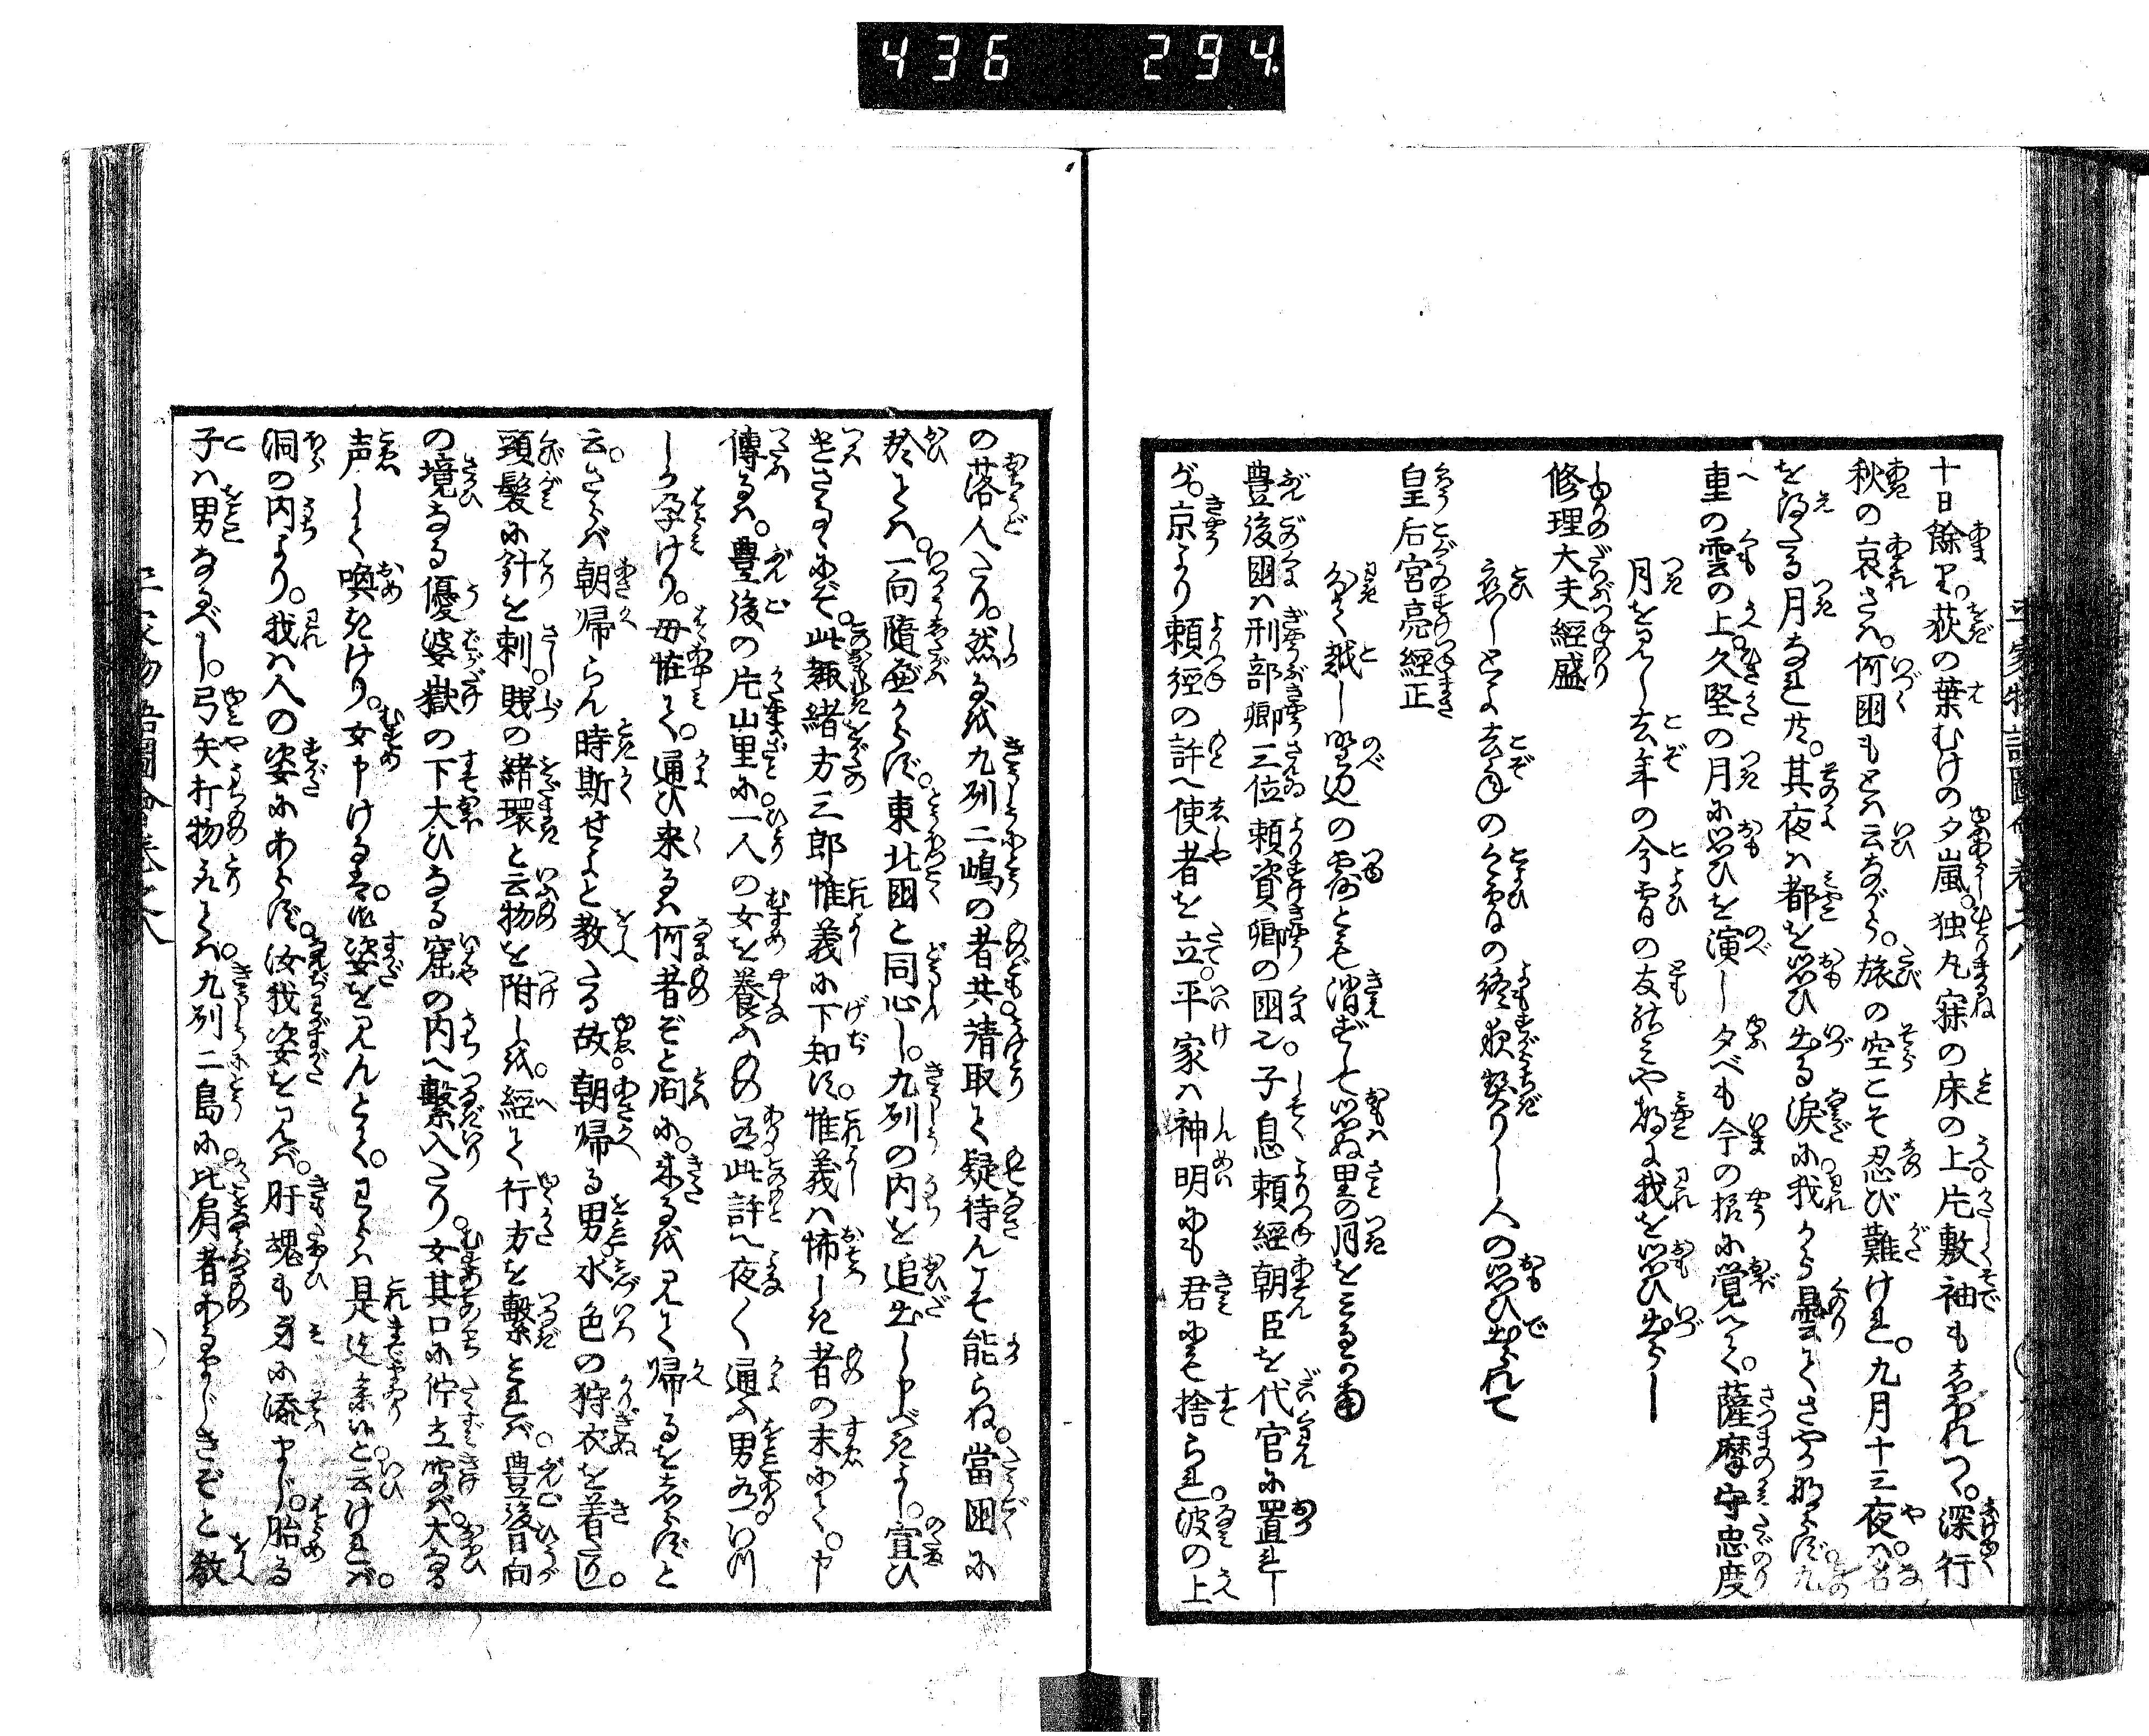 436 294.
十日餘里。荻の葉むけの夕嵐。独丸寐の床の上。片敷袖も志ほれつゝ。深行
秋の哀さハ。何国もとハ云ながら。旅の空こそ忍び難けれ。九月十三夜ハ。名
を得たる月なれ共。其夜ハ都を思ひ出る涙に我から曇てさやかならず。九
重の雲の上。久堅の月に思ひを演し夕べも今の様に覚へて。薩摩守忠度
月を見し去年の今宵の友のミや都に我を思ひ出らん
修理大夫經盛
恋しとよ去年の今宵の終夜契りし人の思ひ出られて
皇后宮亮經正
分て越し野辺の露とも消ずして思ぬ里の月をミるかな
豊後国ハ刑部卿三位頼資卿の国也。子息頼經朝臣を代官に置れし
が。京より頼經の許へ使者を立。平家ハ神明にも君にも捨られ。波の上
の落人たり。然るを九列二嶋の者共請取て疑待んこそ能らね。當国に
於てハ。一向随べからず。東北国と同心し。九列の内を追出し申べきよし。宣ひ
遣さるゝにぞ。此趣緒方三郎惟義に下知す。惟義ハ怖しき者の末にて。申
傳るハ。豊後の片山里に。一人の女を養ふもの有此許へ夜〱通ふ男有。いつ
しか孕けり。母怪て。通ひ来るハ何者ぞと問に。来るを見て帰るを志らずと
云。さらバ朝帰らん時斯せよと教たる故。朝帰る男水色の狩衣を着たり。
頭髪に針を刺。賎の緒環と云物を附しを。經て行方を繋とれバ。豊後日向
の境なる優婆嶽の下大ひなる窟の内へ繋入たり。女其口に佇立聞バ。大なる
声して喚きけり。女申けるハ。御姿を見んとて。わらハ是迄参ぬと云けれバ。
洞の内より。我ハ人の姿にあらず。汝我姿を見バ。肝魂も身に添まじ。胎る
子ハ男なるべし。弓矢打物取てハ。九列二島に比肩者あるまじきぞと教